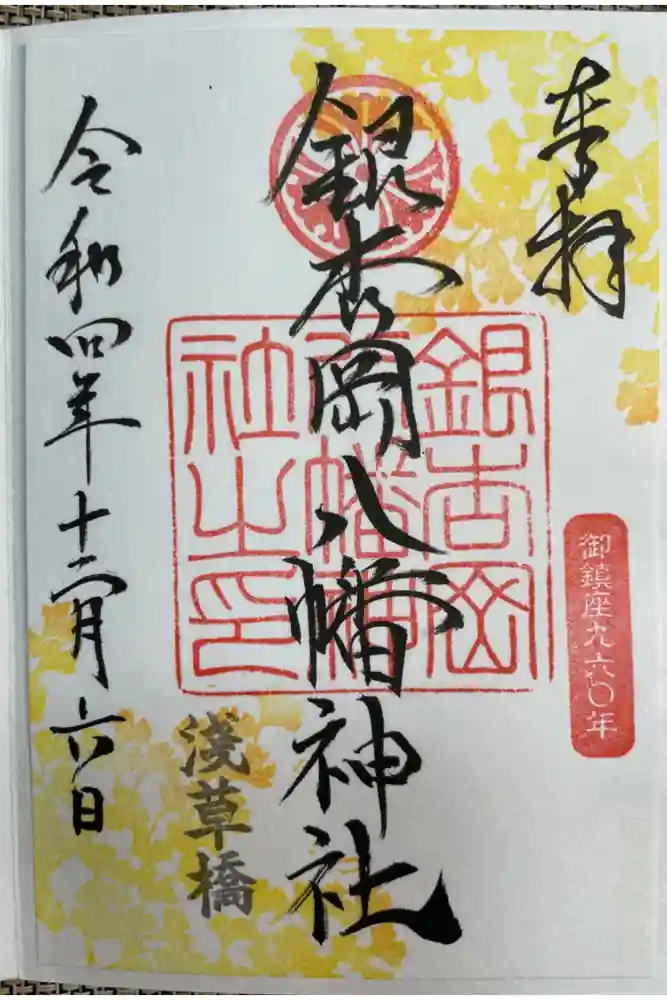 奉拝
御鎮座九六〇年
銀杏岡八幡神社
銀杏岡
八幡神
社之印
浅草橋
令和四年十二月六日